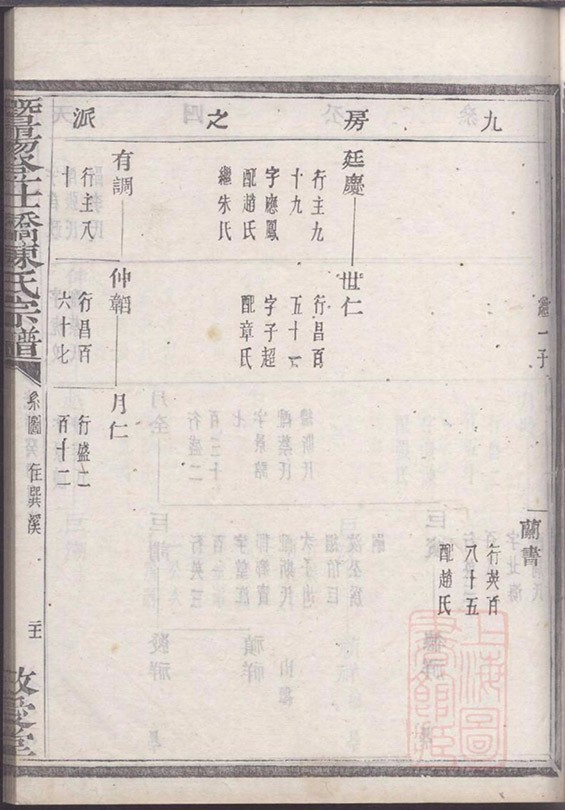 九房之派
繼一子
蘭書
行英百
八十五
配趙氏
廷慶
行主九
十九
字應鳳
配趙氏
繼朱氏
世仁
行昌百
五十一
字子超
配章氏
有調
行主八
十
仲韜
行昌百
六十七
月仁
行盛二
百十二
暨陽
仕橋陳氏宗譜
系圖 在巽溪
敬愛堂
上海圖書館藏